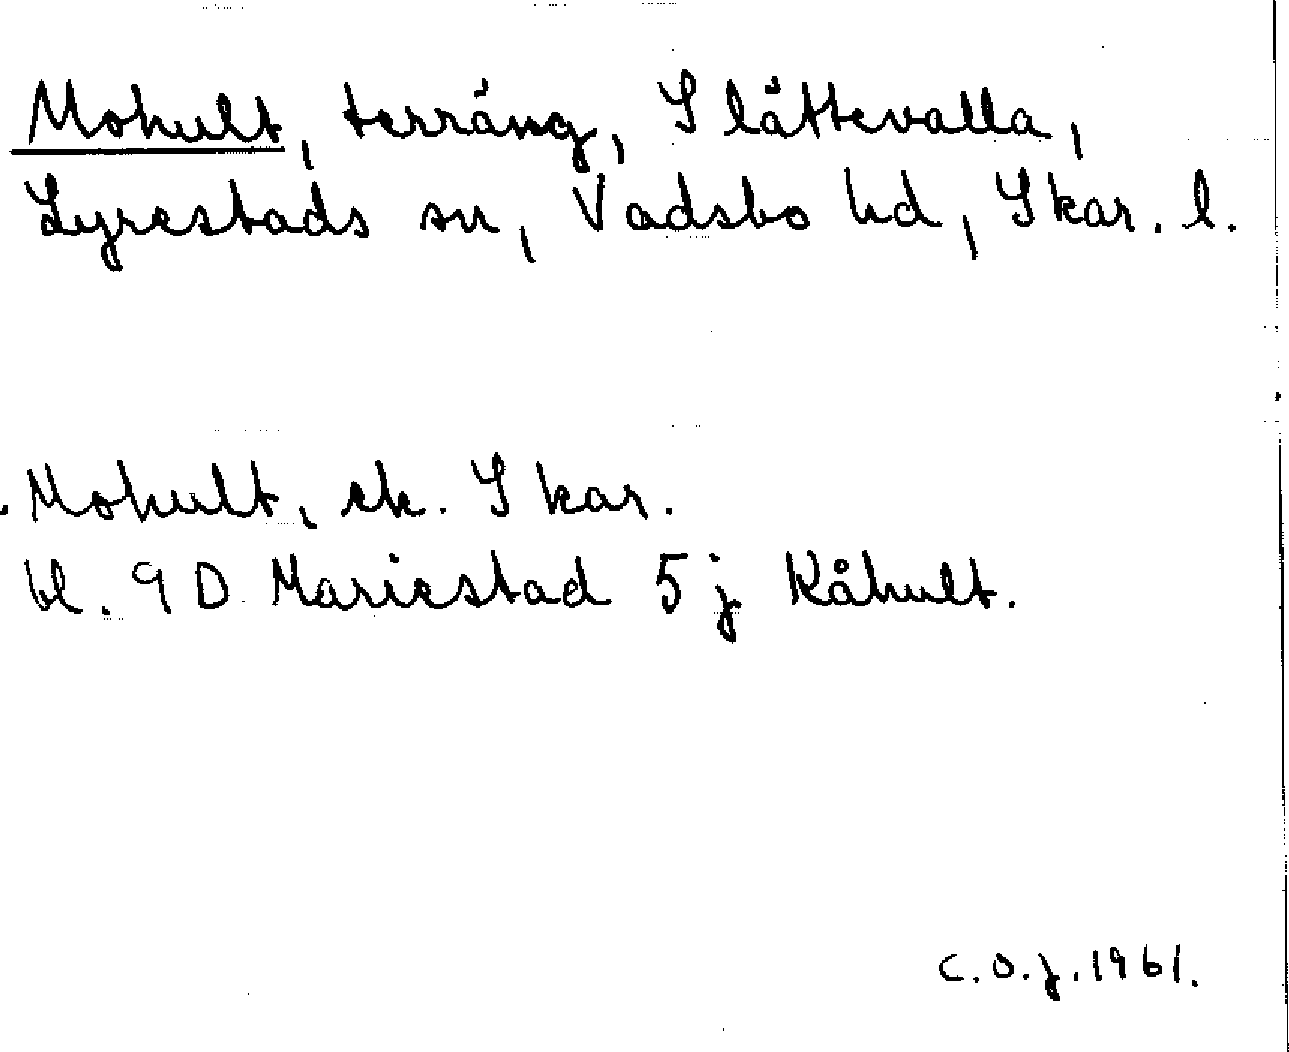 Mohult, terräng, Slättevalla,
Lyrestads sn, Vadsbo hd, Skar. l.
Mohult, ek. Skar.
bl. 9 D Mariestad 5 j Kåhult.
C.O.J. 1961.